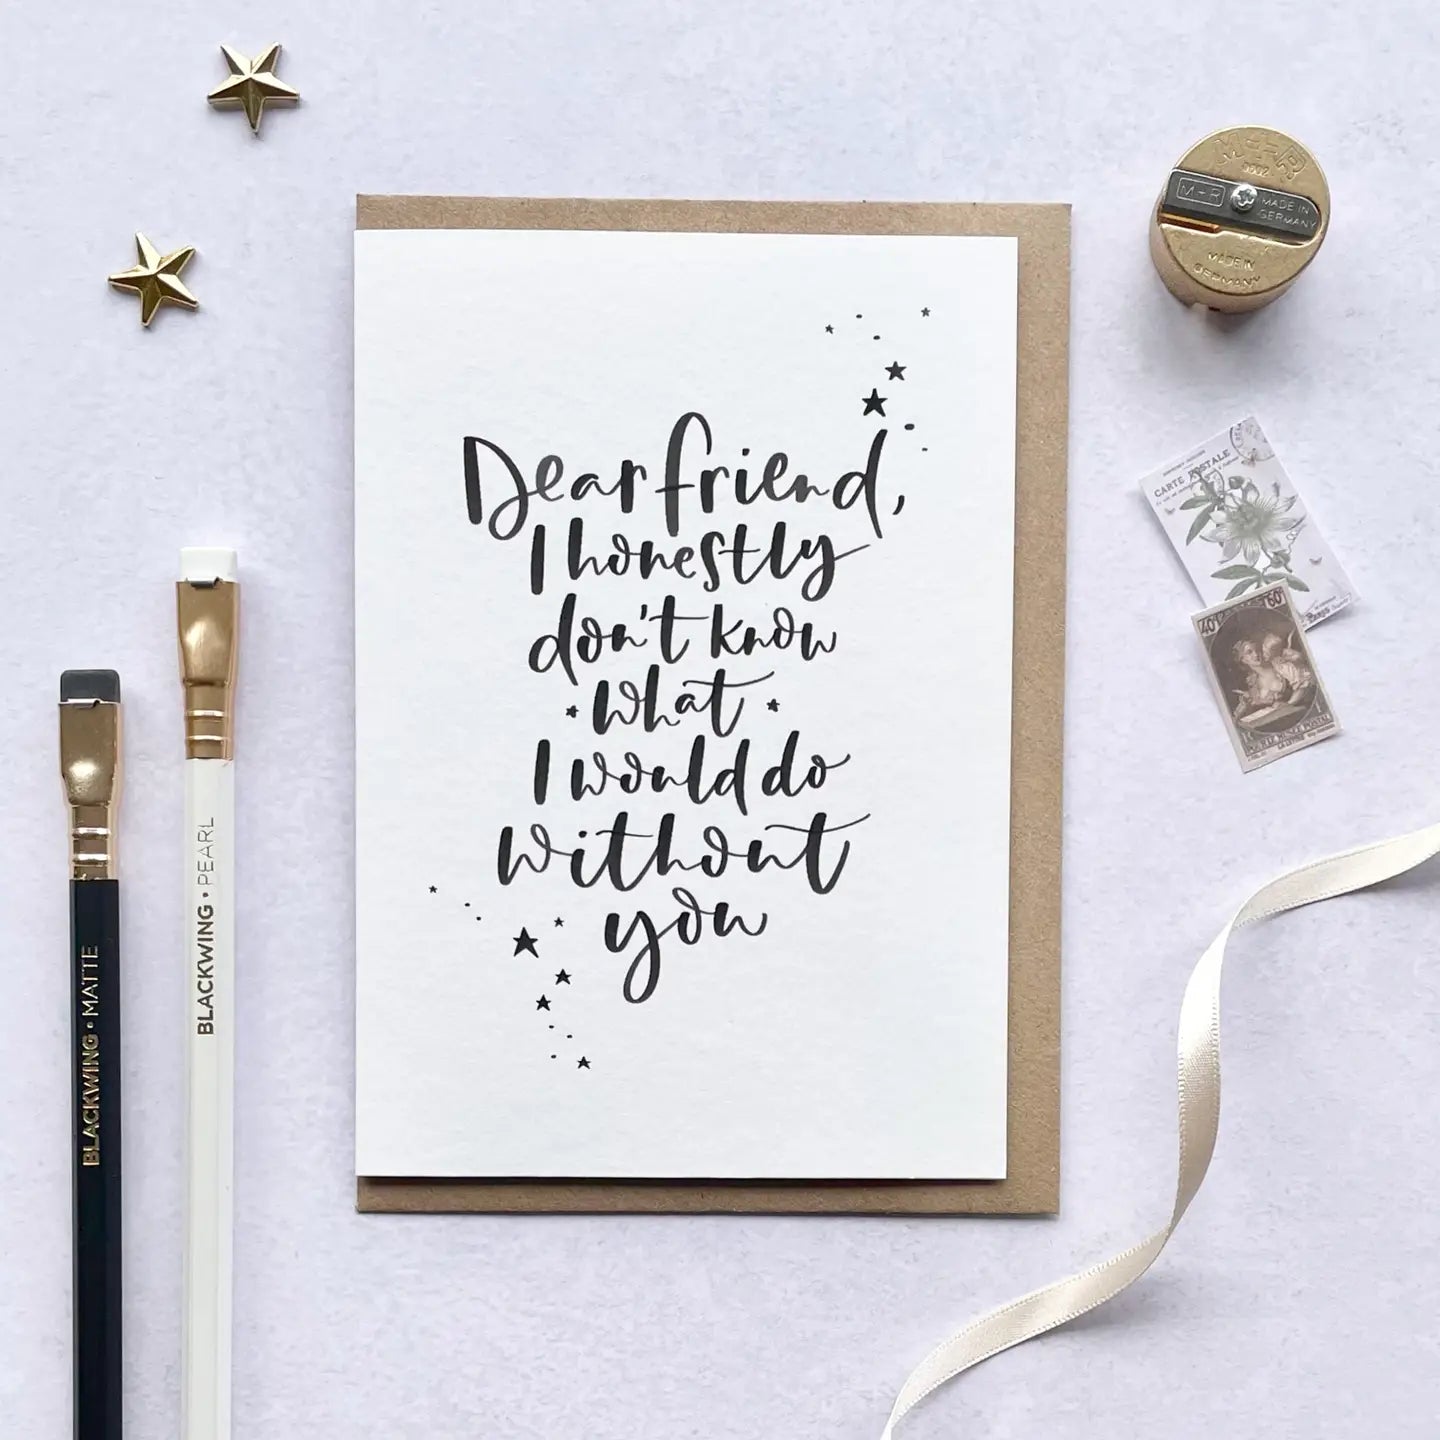 Dear friend,
I honestly
don't know
what
I would do
without
you
BLACKWING • MATTE
BLACKWING • PEARL
M+R
0602
M+R
MADE IN
GERMANY
MADE IN
GERMANY
CARTE POSTALE
40c
+60c